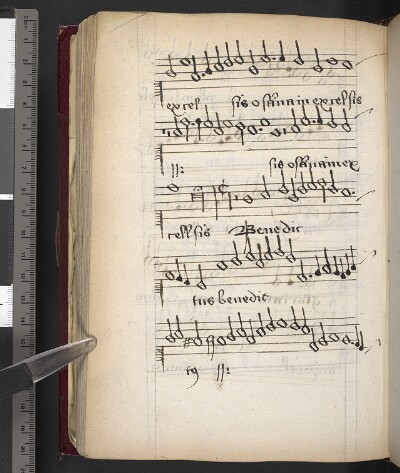 excel sis osanna in excelsis
sis osanna in ex
cellsis Benedic
tus benedic